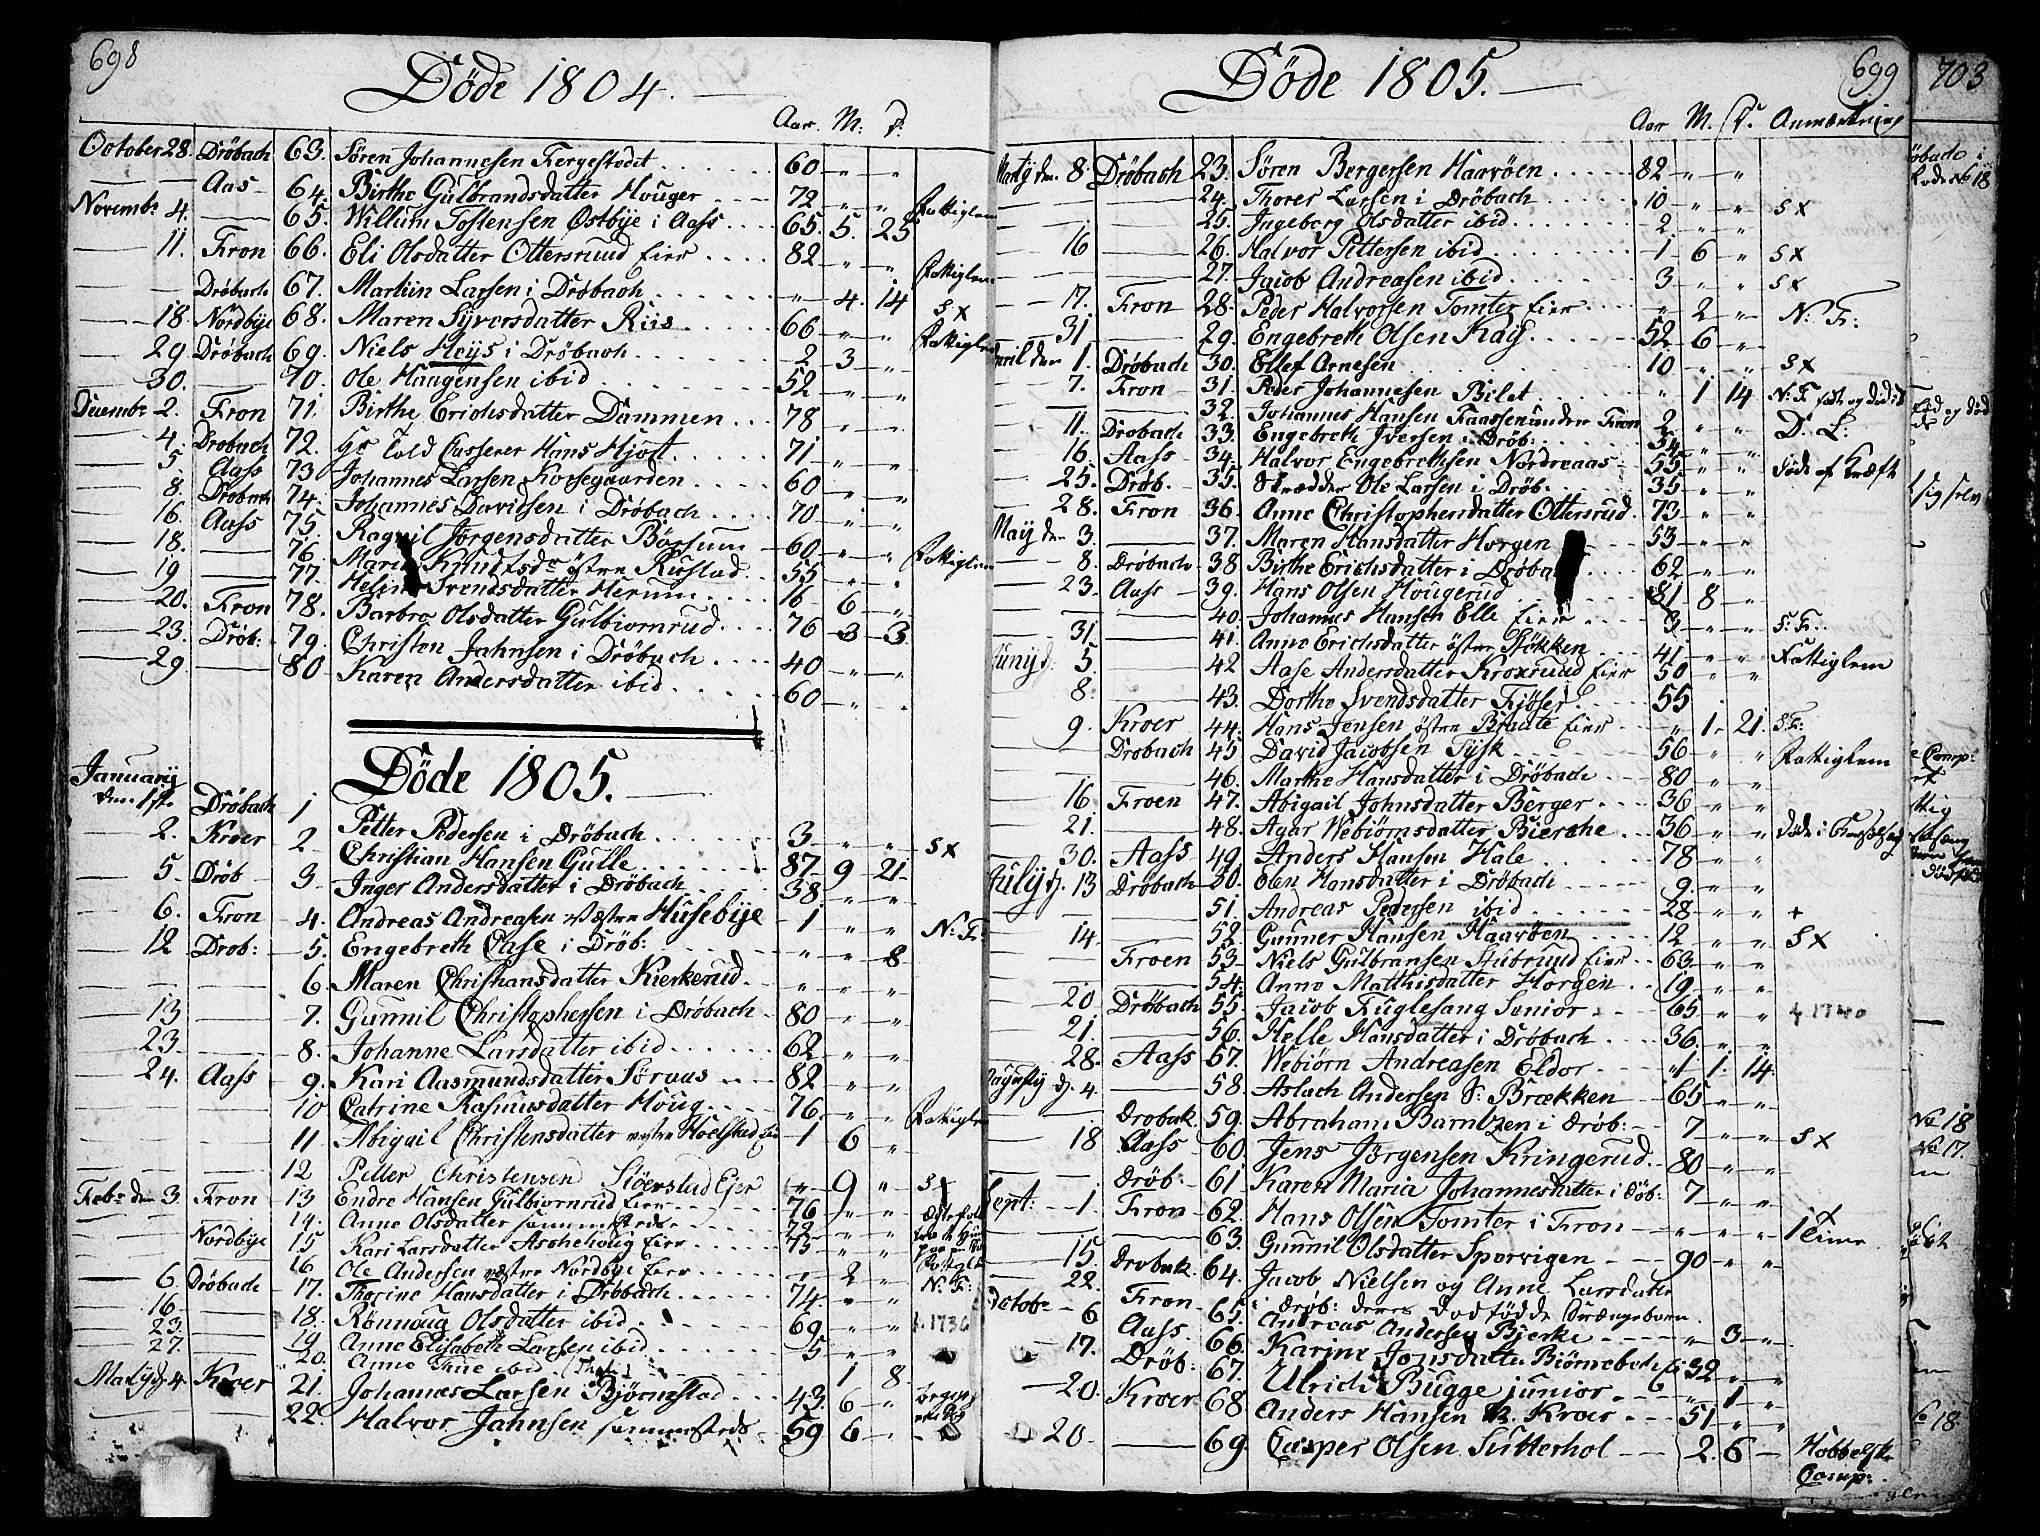 698
Döde 1804.
Aar. M: D:
October 28. Dröbach 63. Sören Johannesen Fergestedet 60 " "
Aas 64. Birthe Gulbrandsdatter Houger 72 " " Fattiglem
Novembr 4. 65. Willum Tostensen Østbye i Aass 65. 5. 25
11. Fron 66. Eli Olsdatter Ottersrund Eier 82 " " Fattiglem
Dröbach 67. Martin Larsen i Dröbach " 4. 14 S x
18. Nordbye 68. Maren Syversdatter Riis 66 " " Fattiglem
29. Dröbach 69. Niels Heijs i Dröbach 2 3 "
30. 70. Ole Haagensen ibid 52 " "
Decembr 2. Fron 71. Birthe Erichsdatter Dammen 78 " "
4. Drobach 72. Told Casserer Hans Hjort 71 " "
5 Aass 73 Johannes Larsen Korsegaarden 60 " "
8. Drobach 74. Johannes Davidsen i Dröbach 70 " "
16. Aass 75. Ragnil Jörgensdatter Börsum 60 " " Fattiglem
18. 76. Maria Knudsdr östre Riøstad 55 " "
19 77. Helene Svendsdatter Herum 16 6 "
20. Fron 78. Barbro Olsdatter Gulbiornrud 76 3 3
23. Dröb: 79. Christen Jahnsen i Dröbach 40 " "
29 80 Karen Andersdatter ibid 60 " "
Döde 1805.
Januarij den 1ste Dröbach 1 Petter Pedersen i Dröbach 3 " " S x
2. Kroer 2 Christian Hansen Gulle 87 9 21
5. Dröb 3 Inger Andersdatter i Dröbach 38 " "
6. Fron 4. Andreas Andreasen Vestre Husebye 1 " " N: F:
12 Drob: 5. Engebreth Case i Dröb: " " 8
6. Maren Christiansdatter Kierkerud " " "
13 7. Gunnil Christophersen i Dröbach 80 " "
23 8. Johanne Larsdatter ibid 62 " "
24. Aass 9. Kari Aasmundsdatter Söraas 82 " "
10 Catrine Rasmusdatter Houg 76. " " Fattiglem
11 Abigail Christensdatter vestre Holstad Eie 1 6 "
12 Petter Christensen Stöerstad Ejer " 9 " S x
Febr den 3. Fron 13 Endre Hansen Gulbiornrud Eier 76 " "
14. Anne Olsdatter sammesteds 72 " "
Nordbye 15 Kari Larsdatter Aschehoug Eier 75 " "
16 Ole Andersen vestre Nordbye Eier " 2 " N: F:
6. Dröbach 17. Thorine Hansdatter i Dröbach 74. " "
16 18. Rönnoug Olsdatter ibid 69 " " f. 1736
23 19 Anne Elisabeth Larsen ibid 5 " "
27. 20. Anne Thue ibid 1 8
Martij d. 4. Kroer 21. Johannes Larsen Bjørnestad 43. 6 "
22. Halvor Jahnsen sammesteds 59 6
699
Döde 1805.
Aar M. D. Anmærkning
Martij den 8. Dröbach 23. Sören Bergersen Haaröen 82 " "
24. Thorer Larsen i Dröbach 10 " " S x
25. Ingeborg Olsdatter ibid 2. " "
16 26. Halvor Pettersen ibid 1 6 " S x
27. Jacob Andreasen ibid 3 " " S x
17. Fron 28. Peder Halvorsen Tomter Eier " 2 " N: F:
31 29. Engebreth Olsen Kaÿ 52 6 "
April den 1. Dröbach 30. Ellef Arnesen 10 " " S x
7. Fron 31. Peder Johannesen Bilet " 1 14 N: F
32. Johannes Hansen Faassen under Fron 2 " " D. L:
11. Drobach 33. Engebreth Iversen i Dröb: 54 " "
16 Aass 34. Halvor Engebrethsen Nordreaas 55 " " Döde af Kræft
25. Dröb. 35. Skrædder Ole Larsen i Dröb 35 " "
28. Fron 36. Anne Christophersdatter Ottersrud 73 " "
Maij den 3. 37. Maren Hansdatter Horgen 53 " "
8. Dröbach 38 Birthe Erichsdatter i Dröbach 62 " "
23 Aass 39. Hans Olsen Hougerud 81 8 "
40. Johannes Hansen Elle Eier 3 " " S: F:
31. 41. Anne Erichsdatter östre Stökken 41 " " Fattiglem
Junij d: 5. 42 Aase Andersdatter Kroxruud Eier 50 " "
8. 43. Dorthe Svendsdatter Fjöser 55
9. Kroer 44. Hans Jensen østre Braate Eier " 1. 21 S: F:
Drobach 45 David Jacobsen Tysk 56 " " Fattiglem
46. Marthe Hansdatter i Dröbach 80 " "
16 Froen 47. Abigail Johnsdatter Berger 36 " "
21. 48. Agar Webiörnsdatter Bierche 36 " " Döde i Barselseng
30. Aass 49 Anders Hansen Hale 78 " "
Julij d. 13 Dröbach 50. Olen Hansdatter i Dröbach 9 " "
51. Andreas Pedersen ibid 28 " " +
14. 52 Gunner Hansen Haaröen 12 " " S x
Froen 53 Niels Gulbransen Stubruud Eier 63 " "
54. Anne Matthisdatter Horgen 19 " "
20 Dröbach 55. Jacob Fuglesang Senior 65 " " f. 1740
21. 56. Helle Hansdatter i Dröbach 36. " "
28. Aass 57. Webiørn Andreasen Eldor " 1. 14
Augustij d. 4 58. Aslach Andersen S: Brækken 65 " "
Drobak 59. Abraham Barntzen i Dröb: 7 " " S x
18 Aass 60 Jens Jörgensen Kringerud 80 " "
Dröb: 61 Karen Maria Johannesdatter i Döb: 7 " "
Sept: 1. Fron 62. Hans Olsen Tomter i Fron " " " 1 Time
63. Gunnil Olsdatter Sporvigen 90 " "
15. Drobak 64. Jacob Nielsen og Anne Larsdatter
i Dröb: deres Dodfödde Drængebarn
22. Fron 65. Andreas Andersen Bjerke " 3 "
Octobr 6 Aass. 66. Karine Jonsdatter Björnebech 32 " "
17. Dröb: 67. Ulrich Bugge junior " 1 "
20. Kroer 68 Anders Hansen N. Kroer 51 " "
20 69. Casper Olsen Sutterhol 2. 6 Hobbelske Comp:
703